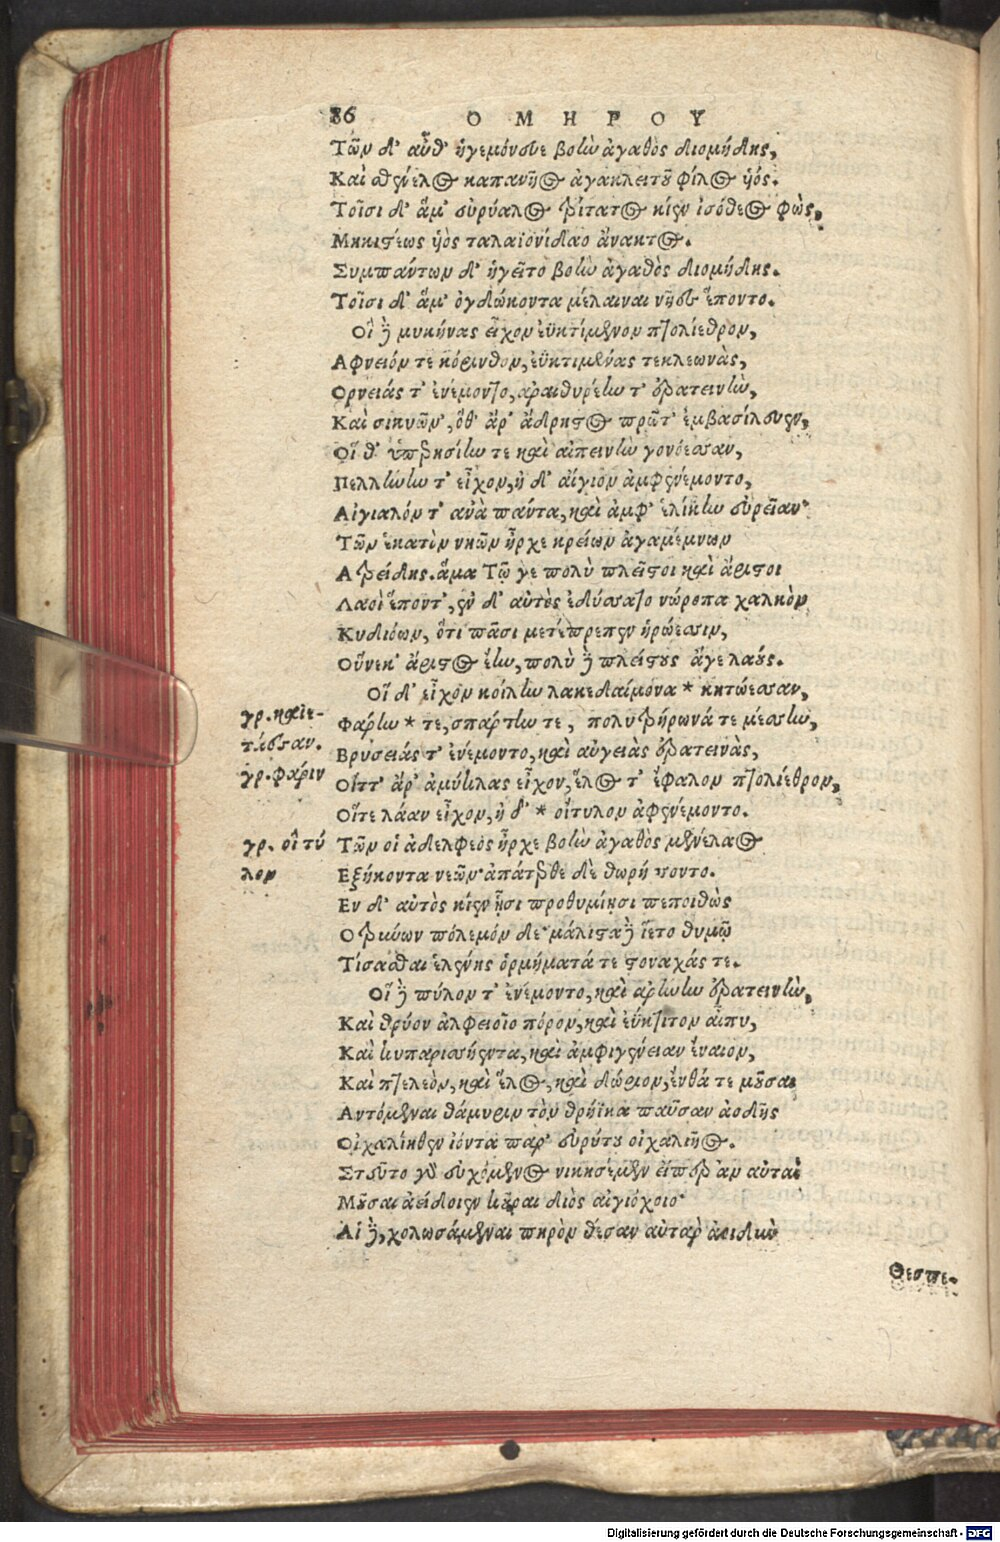 86 ΟΜΗΡΟΥ
Τῶν δ' αὖθ' ἡγεμόνευε βοὴν ἀγαθὸς διομήδης,
Καὶ σθένελος καπανῆος ἀγακλειτοῦ φίλος ὑός.
Τοῖσι δ' ἅμ' εὐρύαλος τρίτατος κίεν ἰσόθεος φὼς,
Μηκιστέως ὑὸς ταλαϊονίδαο ἄνακτος.
Συμπάντων δ' ἡγεῖτο βοὴν ἀγαθὸς διομήδης.
Τοῖσι δ' ἅμ' ὀγδώκοντα μέλαιναι νῆες ἕποντο.
Οἳ δὲ μυκήνας εἶχον ἐϋκτίμενον πτολίεθρον,
Αφνειόν τε κόρινθον, ἐϋκτιμένας τεκλεωνὰς,
Ορνειάς τ' ἐνέμοντο, ἀραιθυρέην τ' ἐρατεινὴν,
Καὶ σικυῶν', ὅθ' ἄρ' ἄδρηστος πρῶτ' ἐμβασίλευεν,
Οἵ θ' ὑπερησίην τε καὶ αἰπεινὴν γονόεσσαν,
Πελλήνην τ' εἶχον, ἠ δ' αἴγιον ἀμφενέμοντο,
Αἰγιαλόν τ' ανὰ πάντα, καὶ ἀμφ' ἑλίκην εὐρεῖαν·
Τῶν ἑκατὸν νηῶν ἦρχε κρείων ἀγαμέμνων
Ατρείδης. ἅμα Τῷ γε πολὺ πλεῖστοι καὶ ἄριστοι
Λαοὶ ἕποντ', ἐν δ' αὐτὸς ἐδύσσατο νώροπα χαλκὸν
Κυδιόων, ὅτι πᾶσι μετέπρεπεν ἡρώεσσιν,
Οὕνεκ' ἄριστος ἔην, πολὺ δὲ πλείστους ἄγε λαούς.
Οἵ δ' εἶχον κοίλην λακεδαίμονα * κητώεσσαν,
γρ. καιε-
τάεσσαν.
Φάρην * τε, σπάρτην τε, πολυτρήρωνά τε μέσσην,
γρ. φάριν
Βρυσειάς τ' ἐνέμοντο, καὶ αὐγειὰς ἐρατεινὰς,
Οἵτ' ἄρ' ἀμύκλας εἶχον, ἕλος τ' ἔφαλον πτολίεθρον,
Οἵτε λάαν εἶχον, ἠ δ' * οἴτυλον ἀφενέμοντο.
γρ. οἳ τύ
λον
Τῶν οἱ ἀδελφεὸς ἦρχε βοὴν ἀγαθὸς μενέλαος
Εξήκοντα νεῶν· ἀπάτερθε δὲ θωρήσσοντο.
Εν δ' αὐτὸς κίεν ᾗσι προθυμίῃσι πεποιθὼς
Οτρύνων πόλεμόν δε· μάλιστα δὲ ἵετο θυμῷ
Τίσασθαι ἑλένης ὁρμήματά τε στοναχάς τε.
Οἳ δὲ πύλον τ' ἐνέμοντο, καὶ αρήνην ἐρατεινὴν,
Καὶ θρύον ἀλφειοῖο πόρον, καὶ ἐΰκτιτον αἶπυ,
Καὶ κυπαρισσήεντα, καὶ ἀμφιγένειαν ἔναιον,
Καὶ πτελεὸν, καὶ ἕλος, καὶ δώριον, ἔνθά τε μοῦσαι
Αντόμεναι θάμυριν τὸν θρήϊκα παῦσαν ἀοιδῆς
Οἰχαλίηθεν ἰόντα παρ' εὐρύτου οἰχαλιῆος.
Στεῦτο γὰρ εὐχόμενος νικησέμεν εἴπερ ἂν αὐταὶ
Μοῦσαι ἀείδοιεν κοῦραι διὸς αἰγιόχοιο·
Αἱ δὲ, χολωσάμεναι πηρὸν θέσαν αὐτὰρ ἀοιδὴν
Θεσπε-
Digitalisierung gefördert durch die Deutsche Forschungsgemeinschaft - DFG